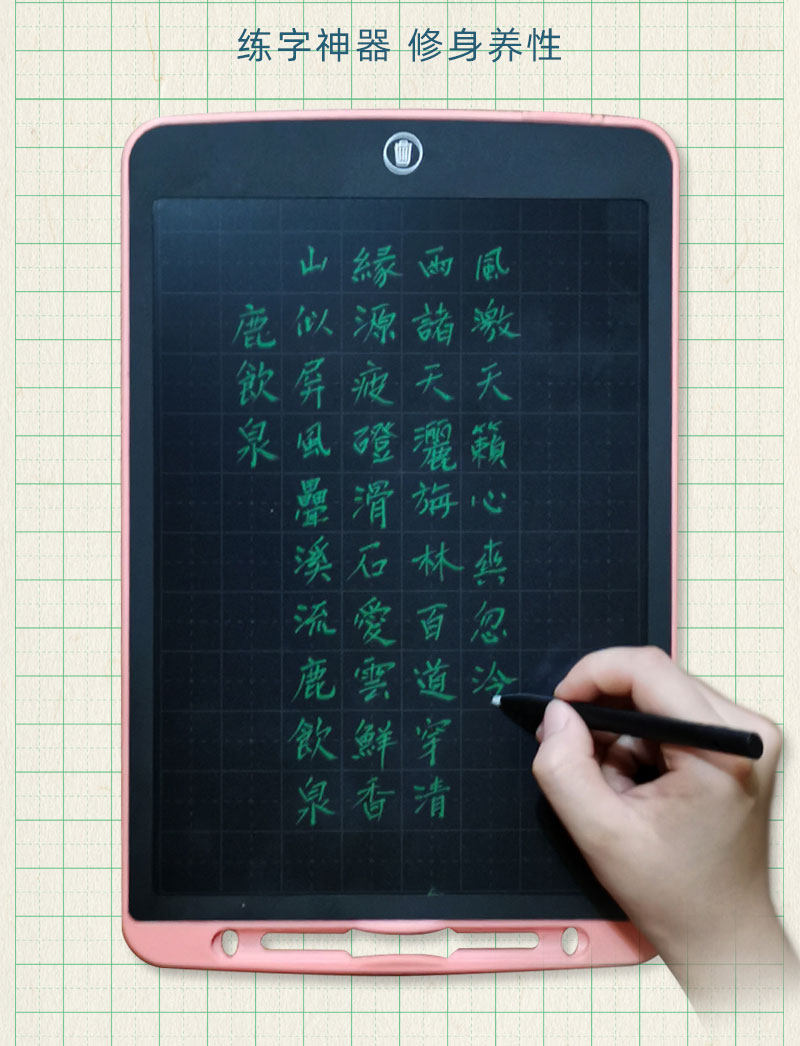 练字神器 修身养性
鹿飲泉
山似屏風疊溪流鹿飲泉
縁源疲磴滑石愛雲鮮香
雨諸天灑旃林百道穿清
風激天籟心爽忽泠